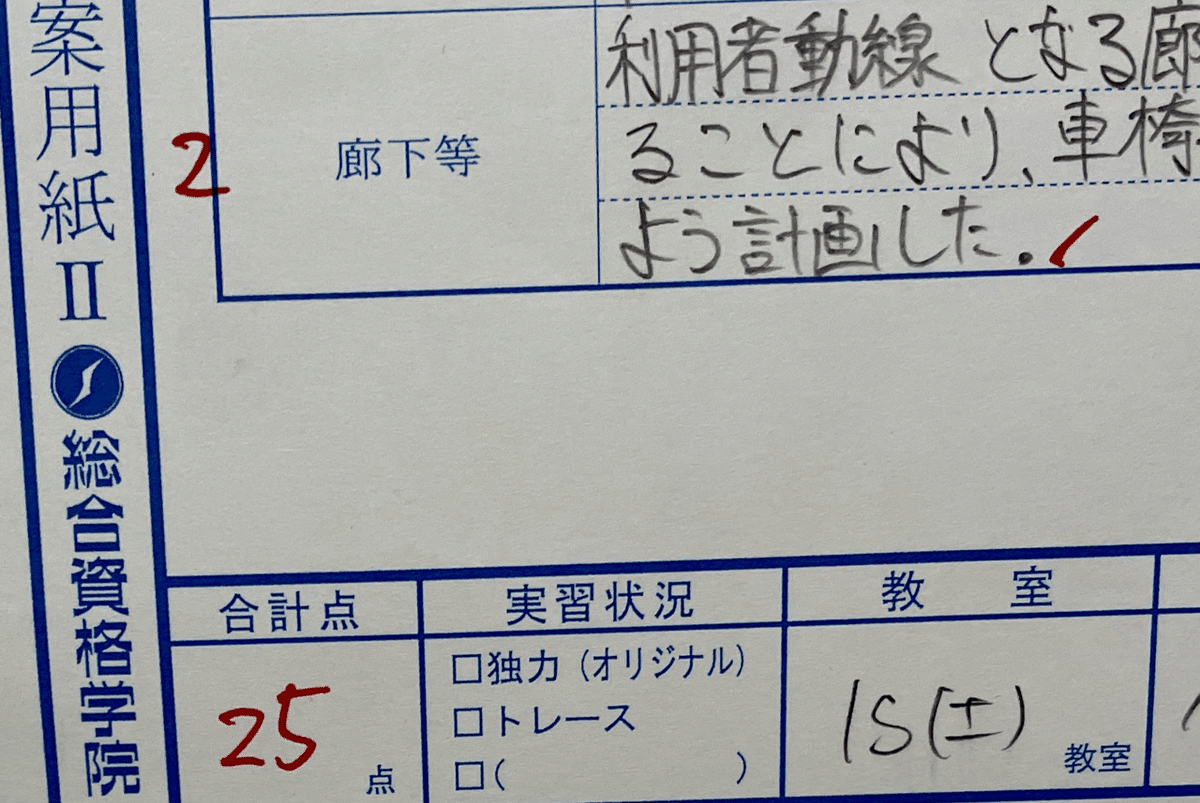 案用紙Ⅱ
総合資格学院
2
廊下等
利用者動線となる廊
ることにより、車椅
よう計画した。
合計点
25
点
実習状況
□独力（オリジナル）
□トレース
□(　　　　)
教室
1S(土)
教室